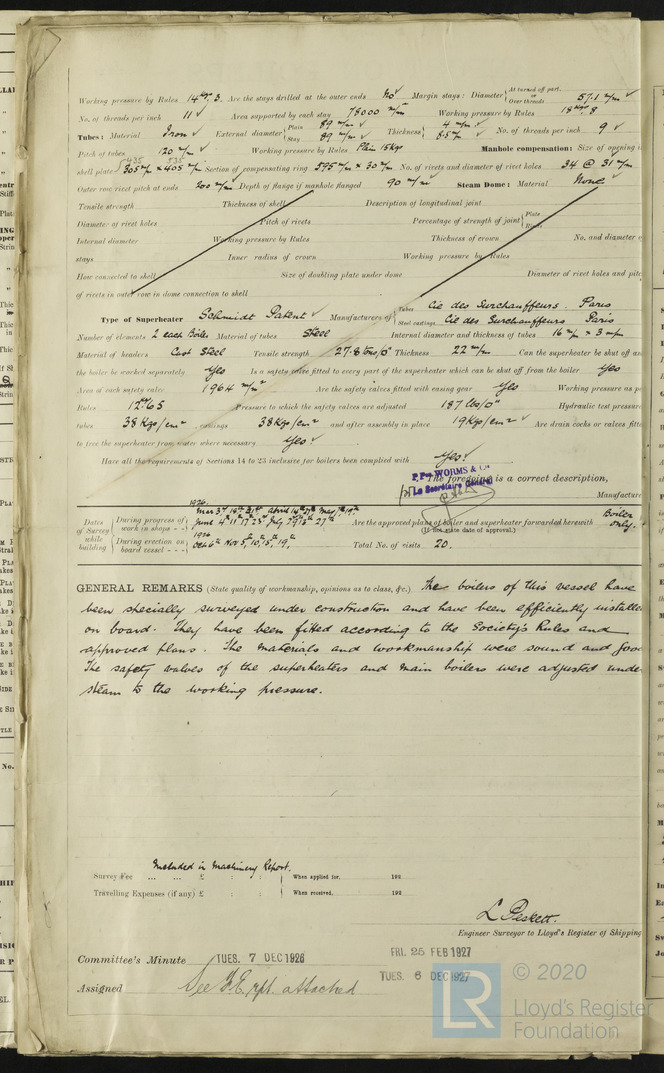 Working pressure by Rules 14 Kgs. 3. Are the stays drilled at the outer ends No Margin stays: Diameter { At turned off part, or Over threads 57.1 m/m
No. of threads per inch 11 Area supported by each stay 78000 m/m Working pressure by Rules 18 Kgs. 8
Tubes: Material Iron External diameter { Plain 89 m/m Stay 89 m/m Thickness { 4 m/m No. of threads per inch 9
Pitch of tubes 120 m/m Working pressure by Rules Plain 15 Kgs Manhole compensation: Size of opening in
shell plate 305 m/m x 405 m/m Section of compensating ring 595 m/m x 30 m/m No. of rivets and diameter of rivet holes 34 @ 31 m/m
Outer row rivet pitch at ends 200 m/m Depth of flange if manhole flanged 90 m/m Steam Dome: Material None
Tensile strength Thickness of shell Description of longitudinal joint
Diameter of rivet holes Pitch of rivets Percentage of strength of joint { Plate Rivets
Internal diameter Working pressure by Rules Thickness of crown No. and diameter o
stays Inner radius of crown Working pressure by Rules
How connected to shell Size of doubling plate under dome Diameter of rivet holes and pitc
of rivets in outer row in dome connection to shell
Type of Superheater Schmidt Patent Manufacturers of { Tubes Cie des Surchauffeurs. Paris
Steel castings Cie des Surchauffeurs Paris
Number of elements 2 each Boiler Material of tubes Steel Internal diameter and thickness of tubes 16 m/m x 3 m/m
Material of headers Cast Steel Tensile strength 27.8 tons/□" Thickness 22 m/m Can the superheater be shut off an
the boiler be worked separately Yes Is a safety valve fitted to every part of the superheater which can be shut off from the boiler Yes
Area of each safety valve 1964 m/m² Are the safety valves fitted with easing gear Yes Working pressure as p
Rules 12.65 Pressure to which the safety valves are adjusted 187 lbs/□" Hydraulic test pressure
tubes 38 Kgs/cm² castings 38 Kgs/cm² and after assembly in place 19 Kgs/cm² Are drain cocks or valves fitte
to free the superheater from water where necessary Yes
Have all the requirements of Sections 14 to 23 inclusive for boilers been complied with Yes.
P. Pon WORMS & Cie
Le Secrétaire Général
The foregoing is a correct description,
Manufacture
Dates of Survey while building
During progress of work in shops - - 1926. Mar 3rd April May June July
During erection on board vessel - - - 1926 Oct 6th Nov 5, 10, 15, 19,
Are the approved plans of boiler and superheater forwarded herewith Boiler only.
(If not state date of approval.)
Total No. of visits 20.
GENERAL REMARKS (State quality of workmanship, opinions as to class, &c.) The boilers of this vessel have
been specially surveyed under construction and have been efficiently installe
on board. They have been fitted according to the Society's Rules and
approved plans. The materials and workmanship were sound and good
The safety valves of the superheaters and main boilers were adjusted unde
steam to the working pressure.
Included in Machinery Report.
Survey Fee ... ... £ : : When applied for, 192
Travelling Expenses (if any) £ : : When received, 192
L Peskett.
Engineer Surveyor to Lloyd's Register of Shipping
Committee's Minute TUES. 7 DEC 1926 FRI. 25 FEB 1927
TUES. 6 DEC 1927
Assigned See F.E. rpt. attached
© 2020
LR
Lloyd's Register
Foundation